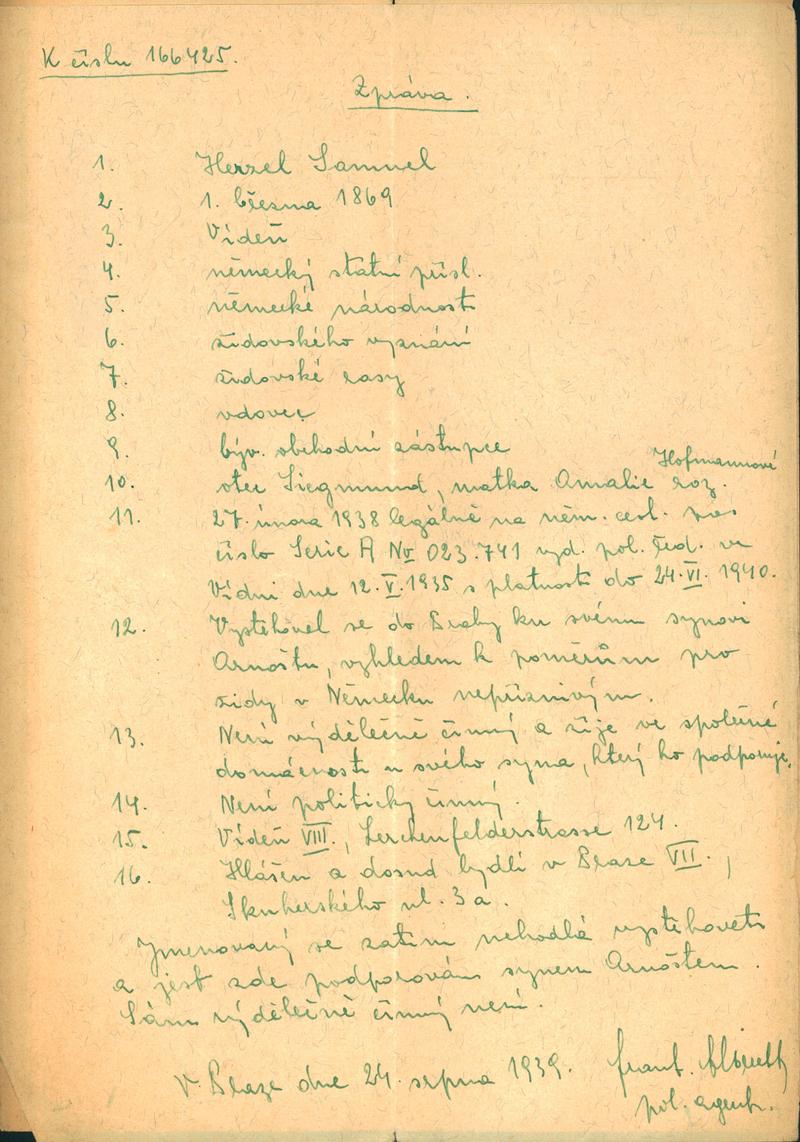 K číslu 166425.
Zpráva.
1. Herzel Samuel
2. 1. března 1869
3. Vídeň
4. německý státní přísl.
5. německé národnosti
6. židovského vyznání
7. židovské rasy
8. vdovec
9. býv. obchodní zástupce
Hofmannové
10. otec Siegmund, matka Amalie roz.
11. 27. února 1938 legálně na něm. cest. pas
číslo Serie A No 023.741 vyd. pol. řed. ve
Vídni dne 12.V.1935 s platností do 24.VI.1940.
12. Vystěhoval se do Prahy ku svému synovi
Arnoštu, vzhledem k poměrům pro
židy v Německu nepříznivým.
13. Není výdělečně činný a žije ve společné
domácnosti u svého syna, který ho podporuje.
14. Není politicky činný.
15. Vídeň VIII., Lerchenfelderstrasse 124.
16. Hlášen a dosud bydlí v Praze VII.,
Skuherského ul. 3a.
Jmenovaný se zatím nehodlá vystěhovati
a jest zde podporován synem Arnoštem.
Sám výdělečně činný není.
V Praze dne 24. srpna 1939. Frant.
pol. agent.